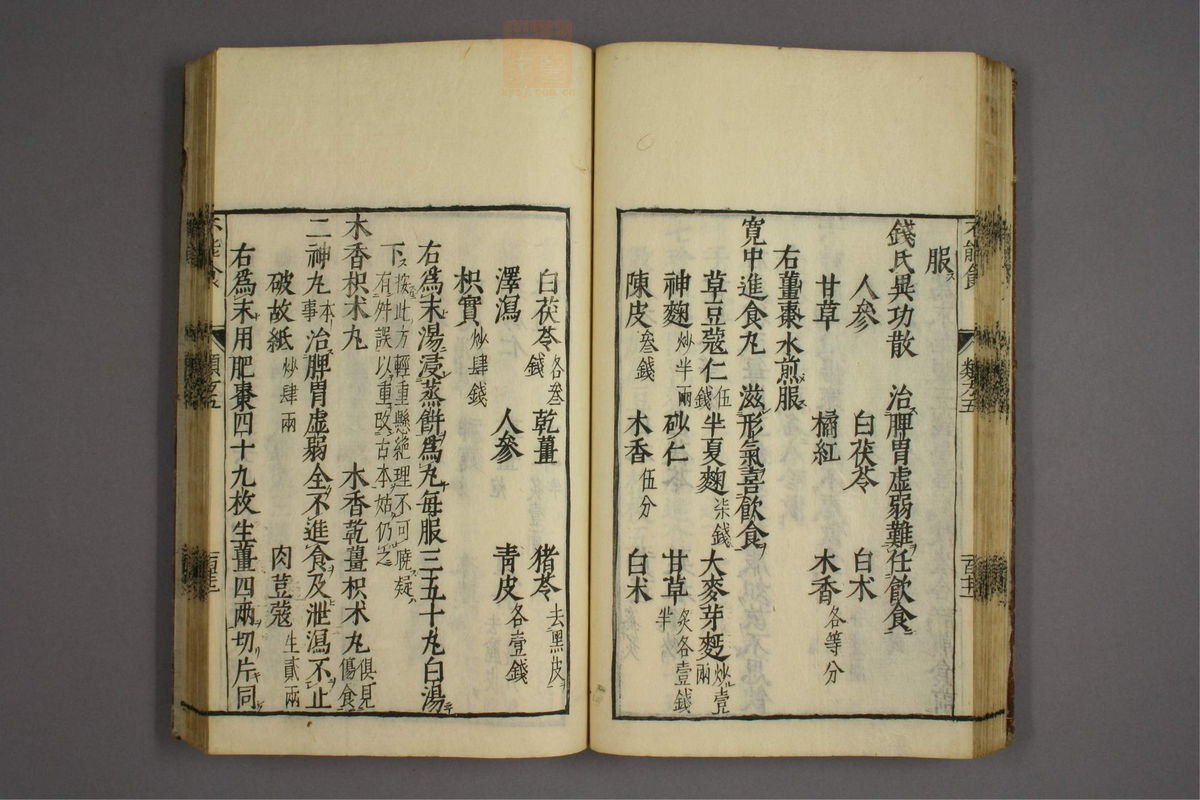 服
錢氏異功散　治脾胃虛弱難任飲食
人參　白茯苓　白朮
甘草　橘紅　木香各等分
右薑棗水煎服
寬中進食丸　滋形氣喜飲食
草豆蔻仁伍錢　半夏麴柒錢　大麥芽麪炒壹兩
神麴炒半兩　砂仁　甘草炙各壹錢半
陳皮叁錢　木香伍分　白朮
白茯苓各叁錢　乾薑　猪苓去黑皮
澤瀉　人參　青皮各壹錢
枳實炒肆錢
右爲末湯浸蒸餅爲丸每服三五十丸白湯
下按此方輕重懸絶理不可曉疑有舛誤以重改古本姑仍之
木香枳朮丸　木香乾薑枳朮丸俱見傷食
二神丸本事　治脾胃虛弱全不進食及泄瀉不止
破故紙炒肆兩　肉荳蔻生貳兩
右爲末用肥棗四十九枚生薑四兩切片同
不能食
類方五